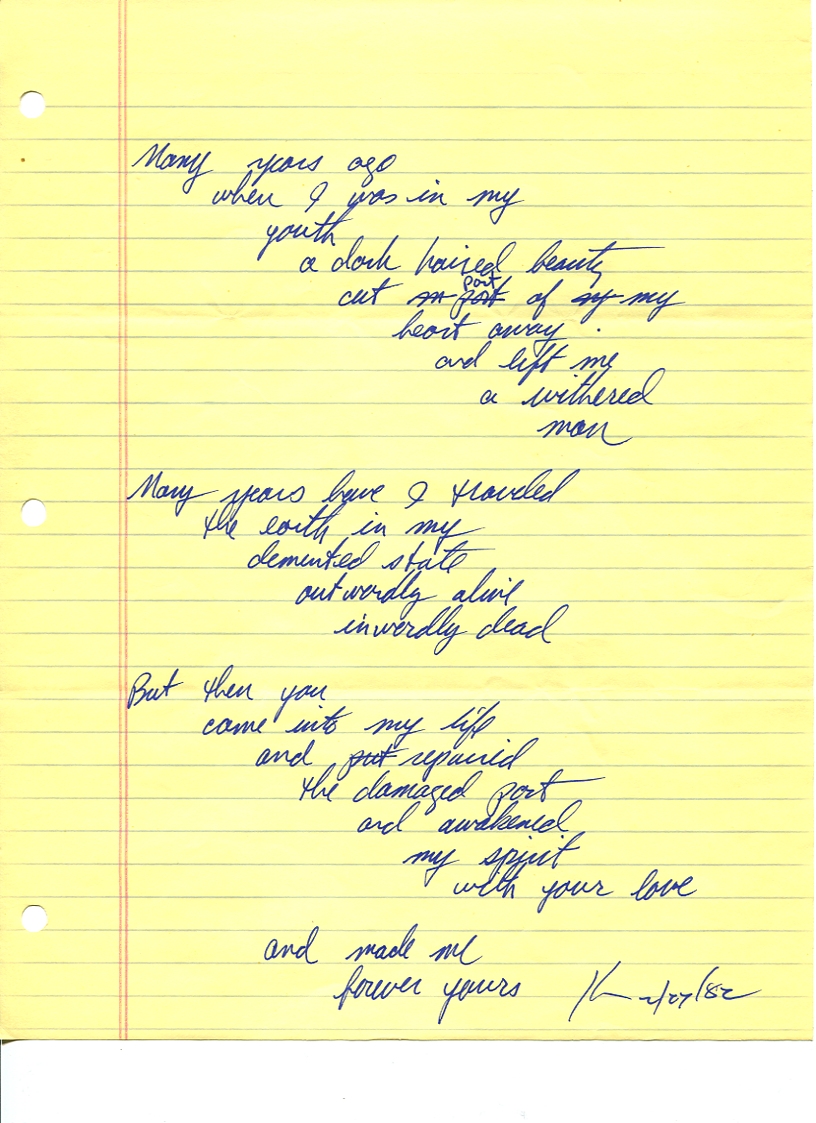 Many years ago
when I was in my
youth
a dark haired beauty
cut part of my
heart away.
and left me
a withered
man
Many years have I traveled
the earth in my
demented state
outwardly alive
inwardly dead
But then you
came into my life
and repaired
the damaged part
and awakened
my spirit
with your love
and made me
forever yours
2/27/82